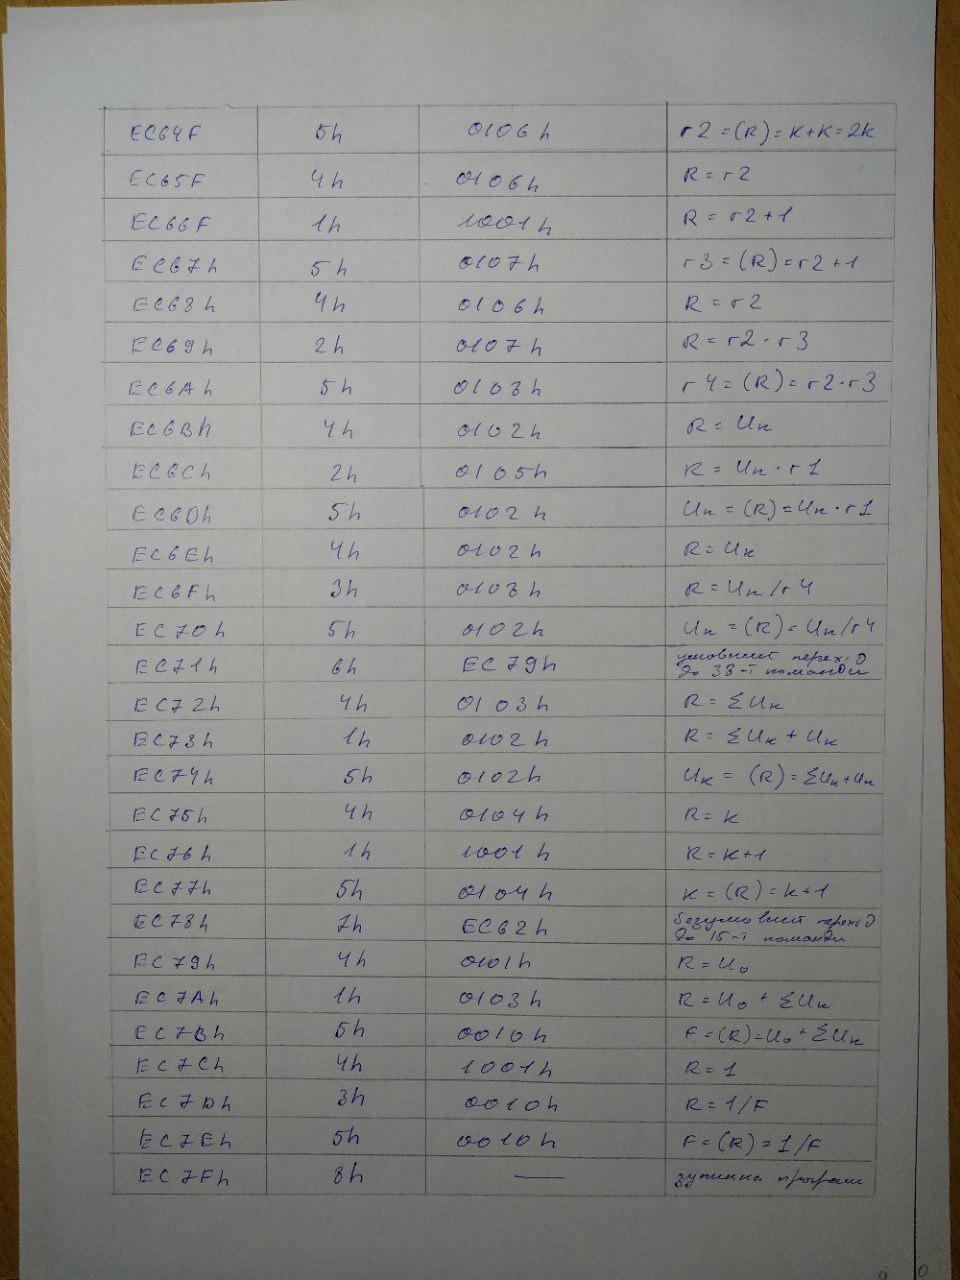 EC64F 5h 0106h r2=(R)=K+K=2k
EC65F 4h 0106h R=r2
EC66F 1h 1001h R=r2+1
EC67h 5h 0107h r3=(R)=r2+1
EC68h 4h 0106h R=r2
EC69h 2h 0107h R=r2·r3
EC6Ah 5h 0103h r4=(R)=r2·r3
EC6Bh 4h 0102h R=Uк
EC6Ch 2h 0105h R=Uк·r1
EC6Dh 5h 0102h Uк=(R)=Uк·r1
EC6Eh 4h 0102h R=Uк
EC6Fh 3h 0103h R=Uк/r4
EC70h 5h 0102h Uк=(R)=Uк/r4
EC71h 6h EC79h умовний перехід
до 38-ї команди
EC72h 4h 0103h R=ΣUк
EC73h 1h 0102h R=ΣUк+Uк
EC74h 5h 0102h Uк=(R)=ΣUк+Uк
EC75h 4h 0104h R=к
EC76h 1h 1001h R=к+1
EC77h 5h 0104h к=(R)=к+1
EC78h 7h EC62h безумовний перехід
до 15-ї команди
EC79h 4h 0101h R=U₀
EC7Ah 1h 0103h R=U₀+ΣUк
EC7Bh 5h 0010h F=(R)=U₀+ΣUк
EC7Ch 4h 1001h R=1
EC7Dh 3h 0010h R=1/F
EC7Eh 5h 0010h F=(R)=1/F
EC7Fh 8h — зупинка програм